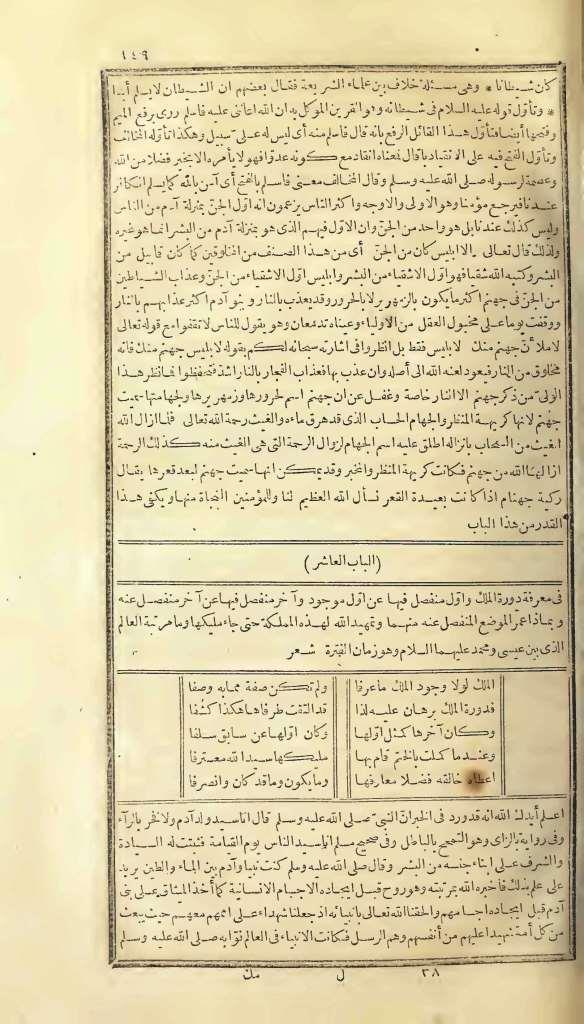 ١٤٩
كان شيطانا * وهى مسئلة خلاف بين علماء الشريعة فقال بعضهم ان الشيطان لا يسلم أبدا
* وتأول قوله عليه السلام فى شيطانه وهو القرين الموكل به ان الله اعاننى عليه فاسلم روى برفع الميم
وفتحها أيضا فتأول هذا القائل الرفع بانه قال فاسلم منه أى ليس له على سبيل وهكذا تأوله المخالف
وتأول الفتح فيه على الانقياد قال فمعناه انقاد مع كونه عدوّا فهو لا يأمرنى الا بخير فضلا من الله
وعصمة لرسوله صلى الله عليه وسلم وقال المخالف معنى فاسلم بالفتح أى آمن بالله كما يسلم الكافر
عندنا فيرجع مؤمنا وهو الاولى والاوجه واكثر الناس يزعمون انه اول الجنّ بمنزلة آدم من الناس
وليس كذلك عندنا بل هو واحد من الجنّ وان الاول فيهم الذى هو بمنزلة آدم من البشر انما هو غيره
ولذلك قال تعالى الا ابليس كان من الجنّ أى من هذا الصنف من المخلوقين كما كان قابيل من
البشر وكتبه الله شقيا فهو اول الاشقياء من البشر وابليس اول الاشقياء من الجنّ وعذاب الشياطين
من الجنّ فى جهنم اكثر ما يكون بالزمهرير لا بالحرور وقد يعذب بالنار وبنو آدم اكثر عذابهم بالنار
ووقفت يوما على مخبول العقل من الاولياء وعيناه تدمعان وهو يقول للناس لا تقفوا مع قوله تعالى
لاملأنّ جهنم منك لابليس فقط بل انظروا فى اشارته سبحانه لكم بقوله لابليس جهنم منك فانه
مخلوق من النار فيعود لعنه الله الى أصله وان عذب بها فعذاب الفجار بالنار اشدّ فتحفظوا فما نظر هذا
الولىّ من ذكر جهنم الا النار خاصة وغفل عن ان جهنم اسم لحرورها وزمهريرها وبجهامتها سميت
جهنم لانها كريهة المنظر والجهام السحاب الذى قد هرق ماءه والغيث رحمة الله تعالى فلما ازال الله
الغيث من السحاب بانزاله اطلق عليه اسم الجهام لزوال الرحمة التى هى الغيث منه كذلك الرحمة
ازالها الله من جهنم فكانت كريهة المنظر والمخبر وقد يمكن انها سميت جهنم لبعد قعرها يقال
ركية جهنام اذا كانت بعيدة القعر نسأل الله العظيم لنا وللمؤمنين النجاة منها ويكفى هذا
القدر من هذا الباب
(الباب العاشر)
فى معرفة دورة الملك واول منفصل فيها عن اول موجود وآخر منفصل فيها عن آخر منفصل عنه
وبماذا عمر الموضع المنفصل عنه منهما وتمهيد الله لهذه المملكة حتى جاء مليكها وما مرتبة العالم
الذى بين عيسى ومحمد عليهما السلام وهو زمان الفترة شعر
الملك لولا وجود الملك ما عرفا ولم تكن صفة مما به وصفا
فدورة الملك برهان عليه لذا قد التقت طرفاها هكذا كشفا
وكان آخرها كمثل اولها وكان اولها عن سابق سلفا
وعند ما كملت بالختم قام بها مليكها سيدا لله معترفا
اعطاه خالقه فضلا معارفها وما يكون وما قد كان وانصرفا
اعلم أيدك الله انه قد ورد فى الخبر ان النبىّ صلى الله عليه وسلم قال انا سيد ولد آدم ولا فخر بالرآء
وفى رواية بالزاى وهو التبجح بالباطل وفى صحيح مسلم انا سيد الناس يوم القيامة فثبتت له السيادة
والشرف على ابناء جنسه من البشر وقال صلى الله عليه وسلم كنت نبيا وآدم بين الماء والطين يريد
على علم بذلك فاخبره الله بمرتبته وهو روح قبل ايجاده الاجسام الانسانية كما أخذ الميثاق على بنى
آدم قبل ايجاده اجسامهم والحقنا الله تعالى بانبيائه اذ جعلنا شهداء على اممهم معهم حيث يبعث
من كل أمة شهيدا عليهم من أنفسهم وهم الرسل فكانت الانبياء فى العالم نوّابه صلى الله عليه وسلم
٣٨ ل مك